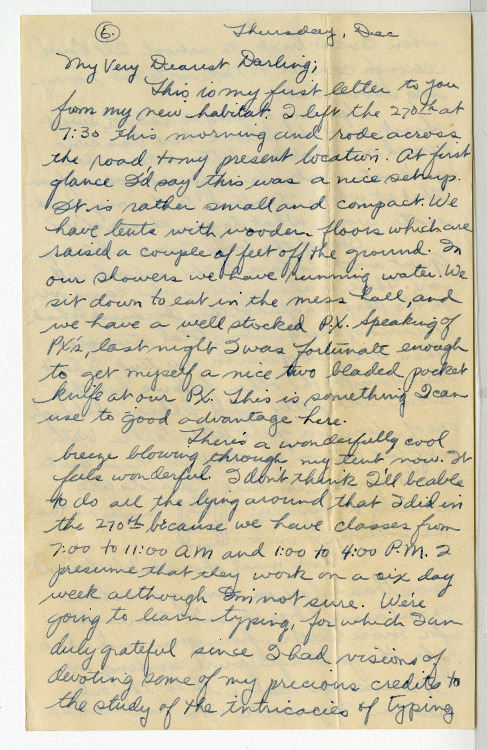 6.
Thursday, Dec
My Very Dearest Darling;
This is my first letter to you
from my new habitat. I left the 270th at
7:30 this morning and rode across
the road to my present location. At first
glance I'd say this was a nice set up.
It is rather small and compact. We
have tents with wooden floors which are
raised a couple of feet off the ground. In
our showers we have running water. We
sit down to eat in the mess hall, and
we have a well stocked P.X. Speaking of
PX's, last night I was fortunate enough
to get myself a nice two bladed pocket
knife at our PX. This is something I can
use to good advantage here.
There's a wonderfully cool
breeze blowing through my tent now. It
feels wonderful. I don't think I'll be able
to do all the lying around that I did in
the 270th because we have classes from
7:00 to 11:00 AM and 1:00 to 4:00 P.M. I
presume that they work on a six day
week although I'm not sure. We're
going to learn typing, for which I am
duly grateful since I had visions of
devoting some of my precious credits to
the study of the intricacies of typing